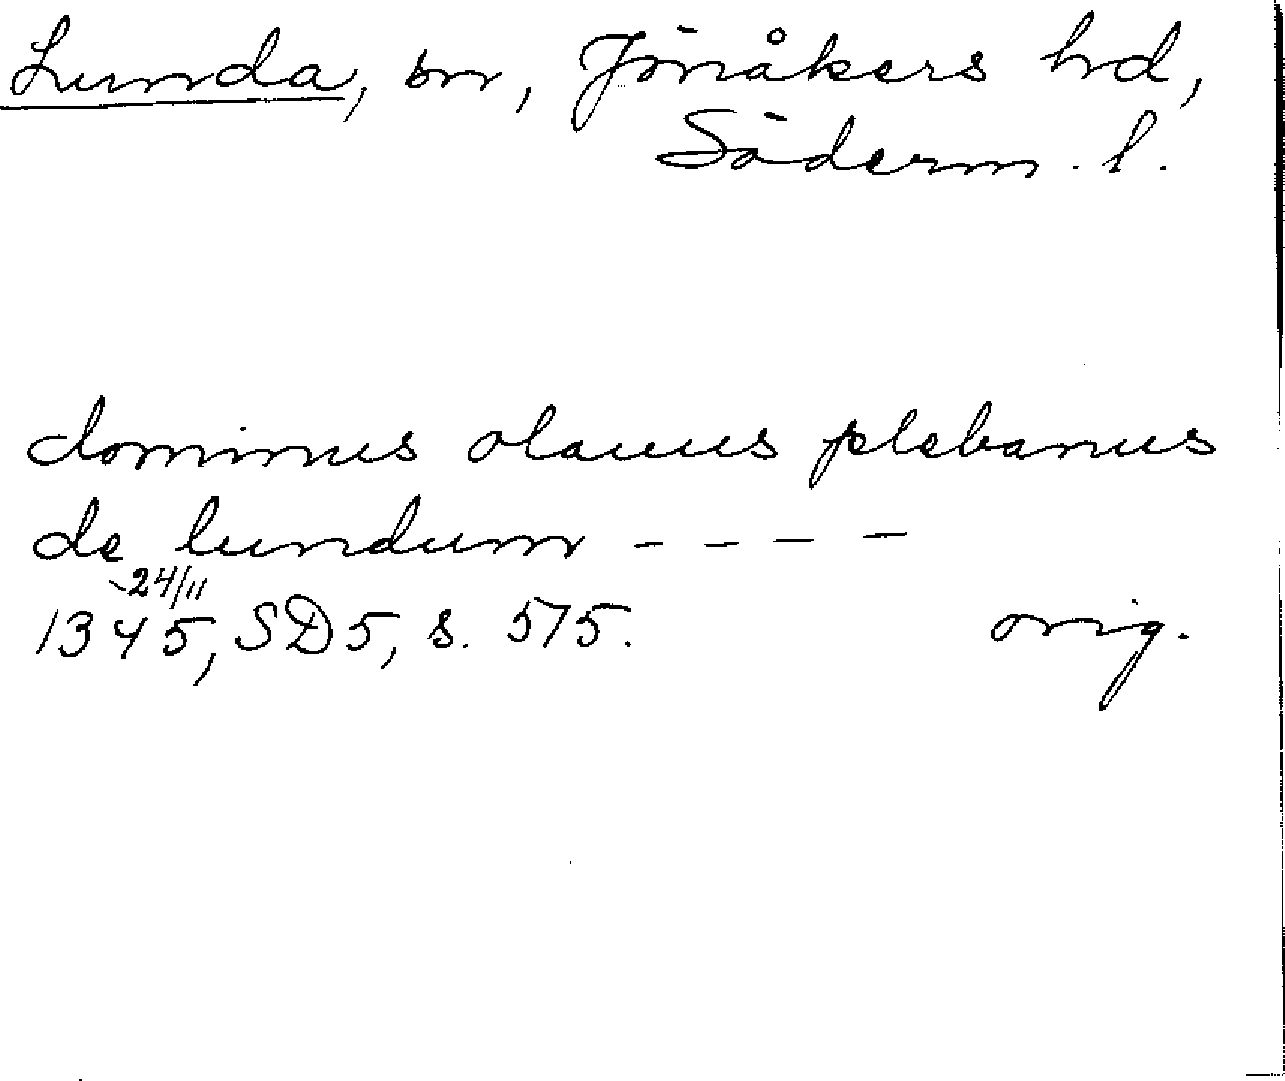 Lunda, sn, Jönåkers hd,
Söderm. l.
dominus olauus plebanus
de lundum - - - -
24/11
1345, SD5, s. 575. orig.